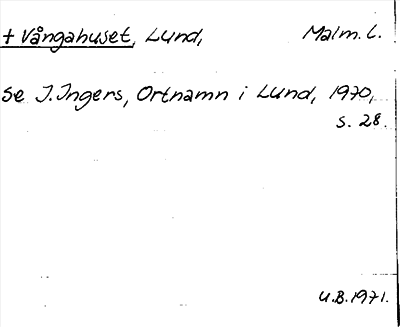 + Vångahuset, Lund, Malm. L.
se I. Ingers, Ortnamn i Lund, 1970,
s. 28.
U.B. 1971.